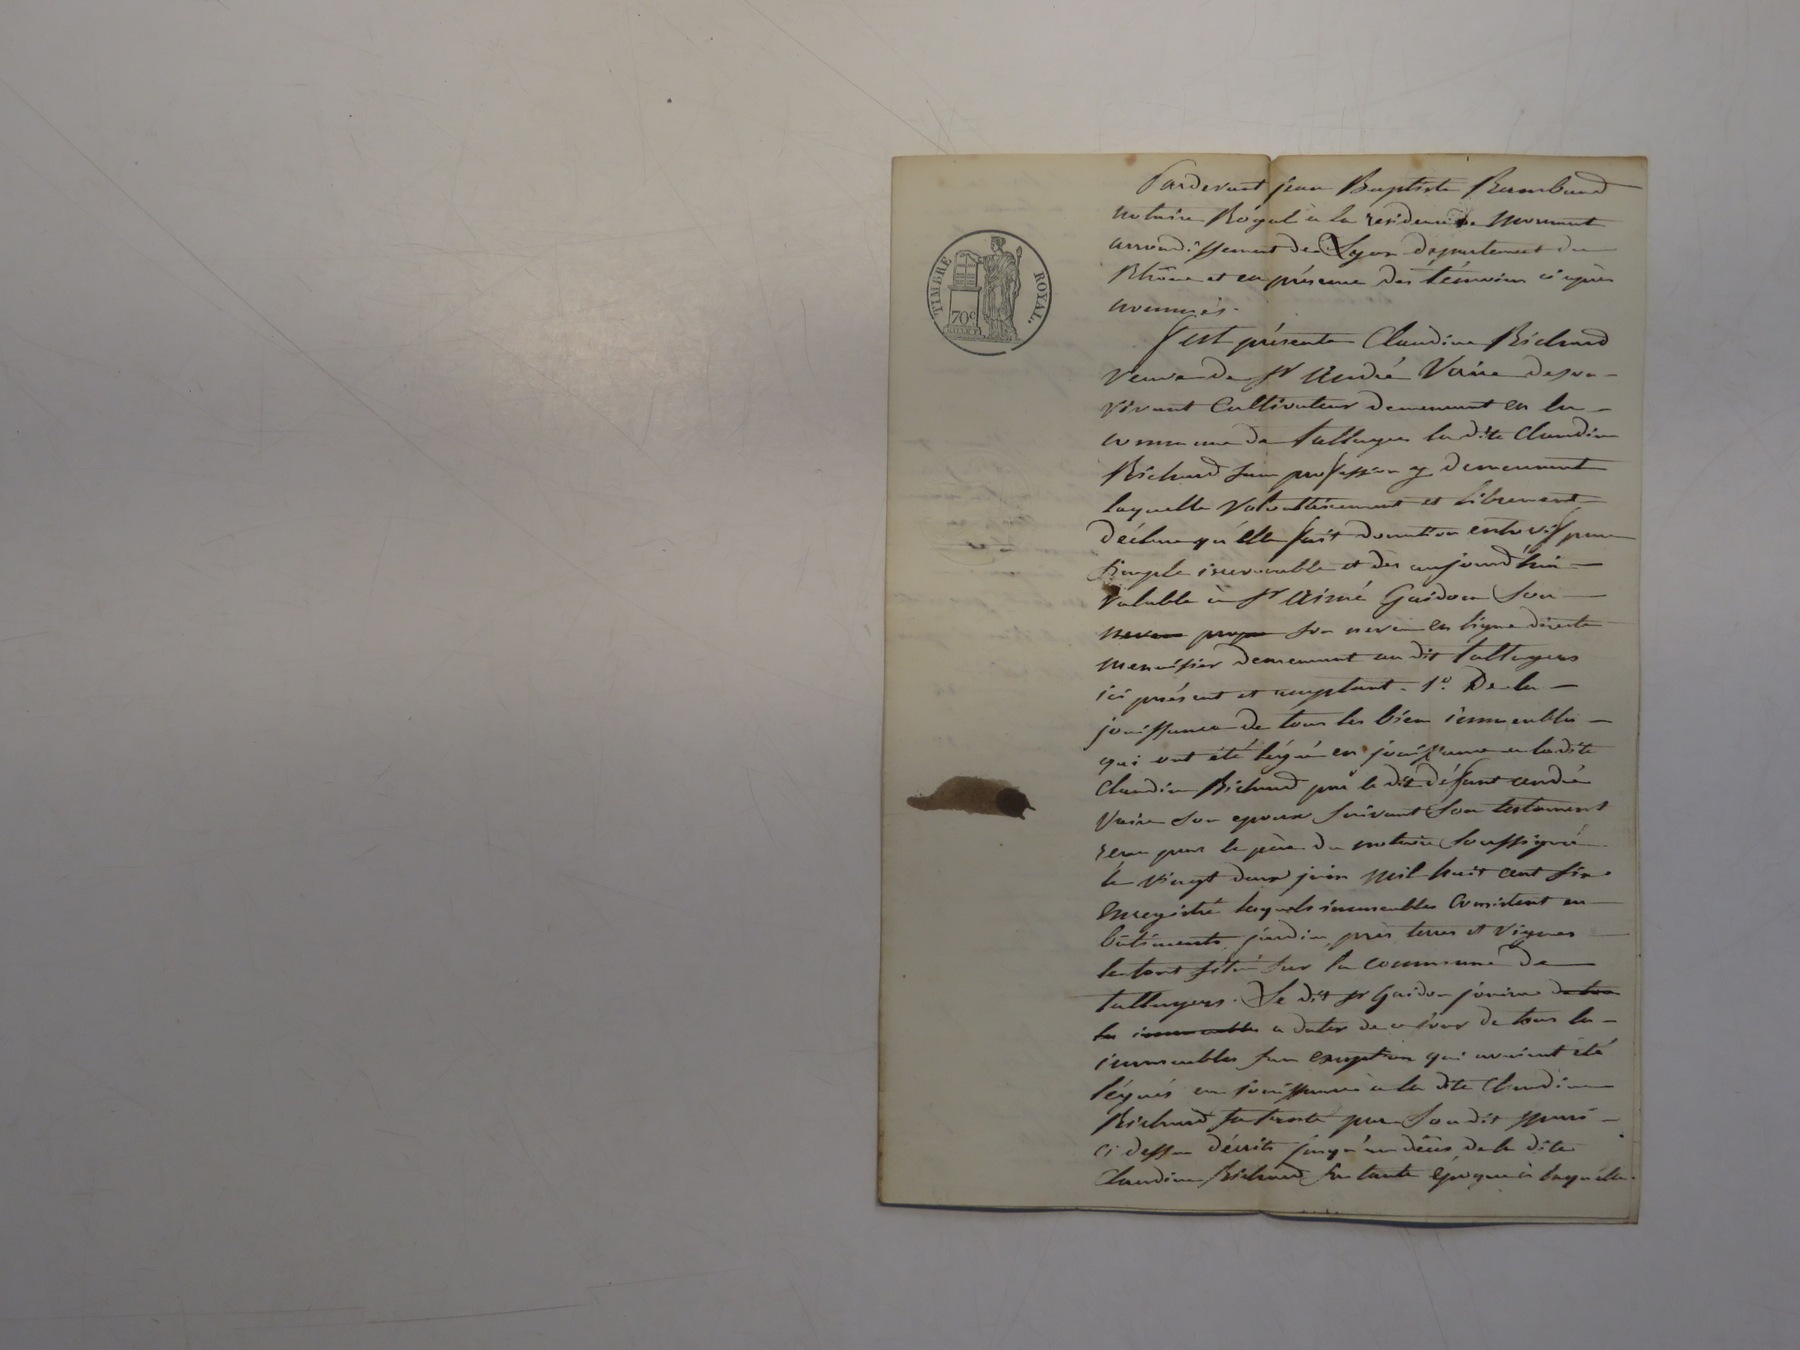 TIMBRE ROYAL.
70c
Pardevant jean Baptiste Rambaud
notaire Royal à la residence de Mornant
arrondissement de Lyon departement du
Rhône et en présence des témoins ci après
nommés.
S'est présentée Claudine Richard
Veuve de Sr André Voire de son
vivant Cultivateur demeurant en la
commune de talluyers la dite Claudine
Richard sans profession y demeurant
laquelle Volontairement et librement
déclare qu'elle fait donation entrevif pure
simple irrevocable et des aujourd'hui
Valable à Sr Aimé Guidon Son
neveu propre son neveu en ligne directe
menuisier demeurant au dit talluyers
ici présent et acceptant. 1º. De la
jouissance de tous les bien immeubles
qui ont été légué en jouissance a la dite
Claudine Richard par le dit défunt andré
Voire son epoux suivant Son testament
recu par le père du notaire Soussigné
le vingt deux juin mil huit cent six
Enregistré lesquels immeubles Consistent en
bâtiments, jardin, près terres et vignes
le tout situé sur la commune de
talluyers. Le dit Sr Guidon jouira de tous
les immeubles a dater de ce jour de tous les
immeubles sans exeption qui avaient été
légués en jouissance a la dite Claudine
Richard sa tante par Son dit mari
ci dessus décrits jusqu'au décès de la dite
Claudine Richard sa tante époque à laquelle